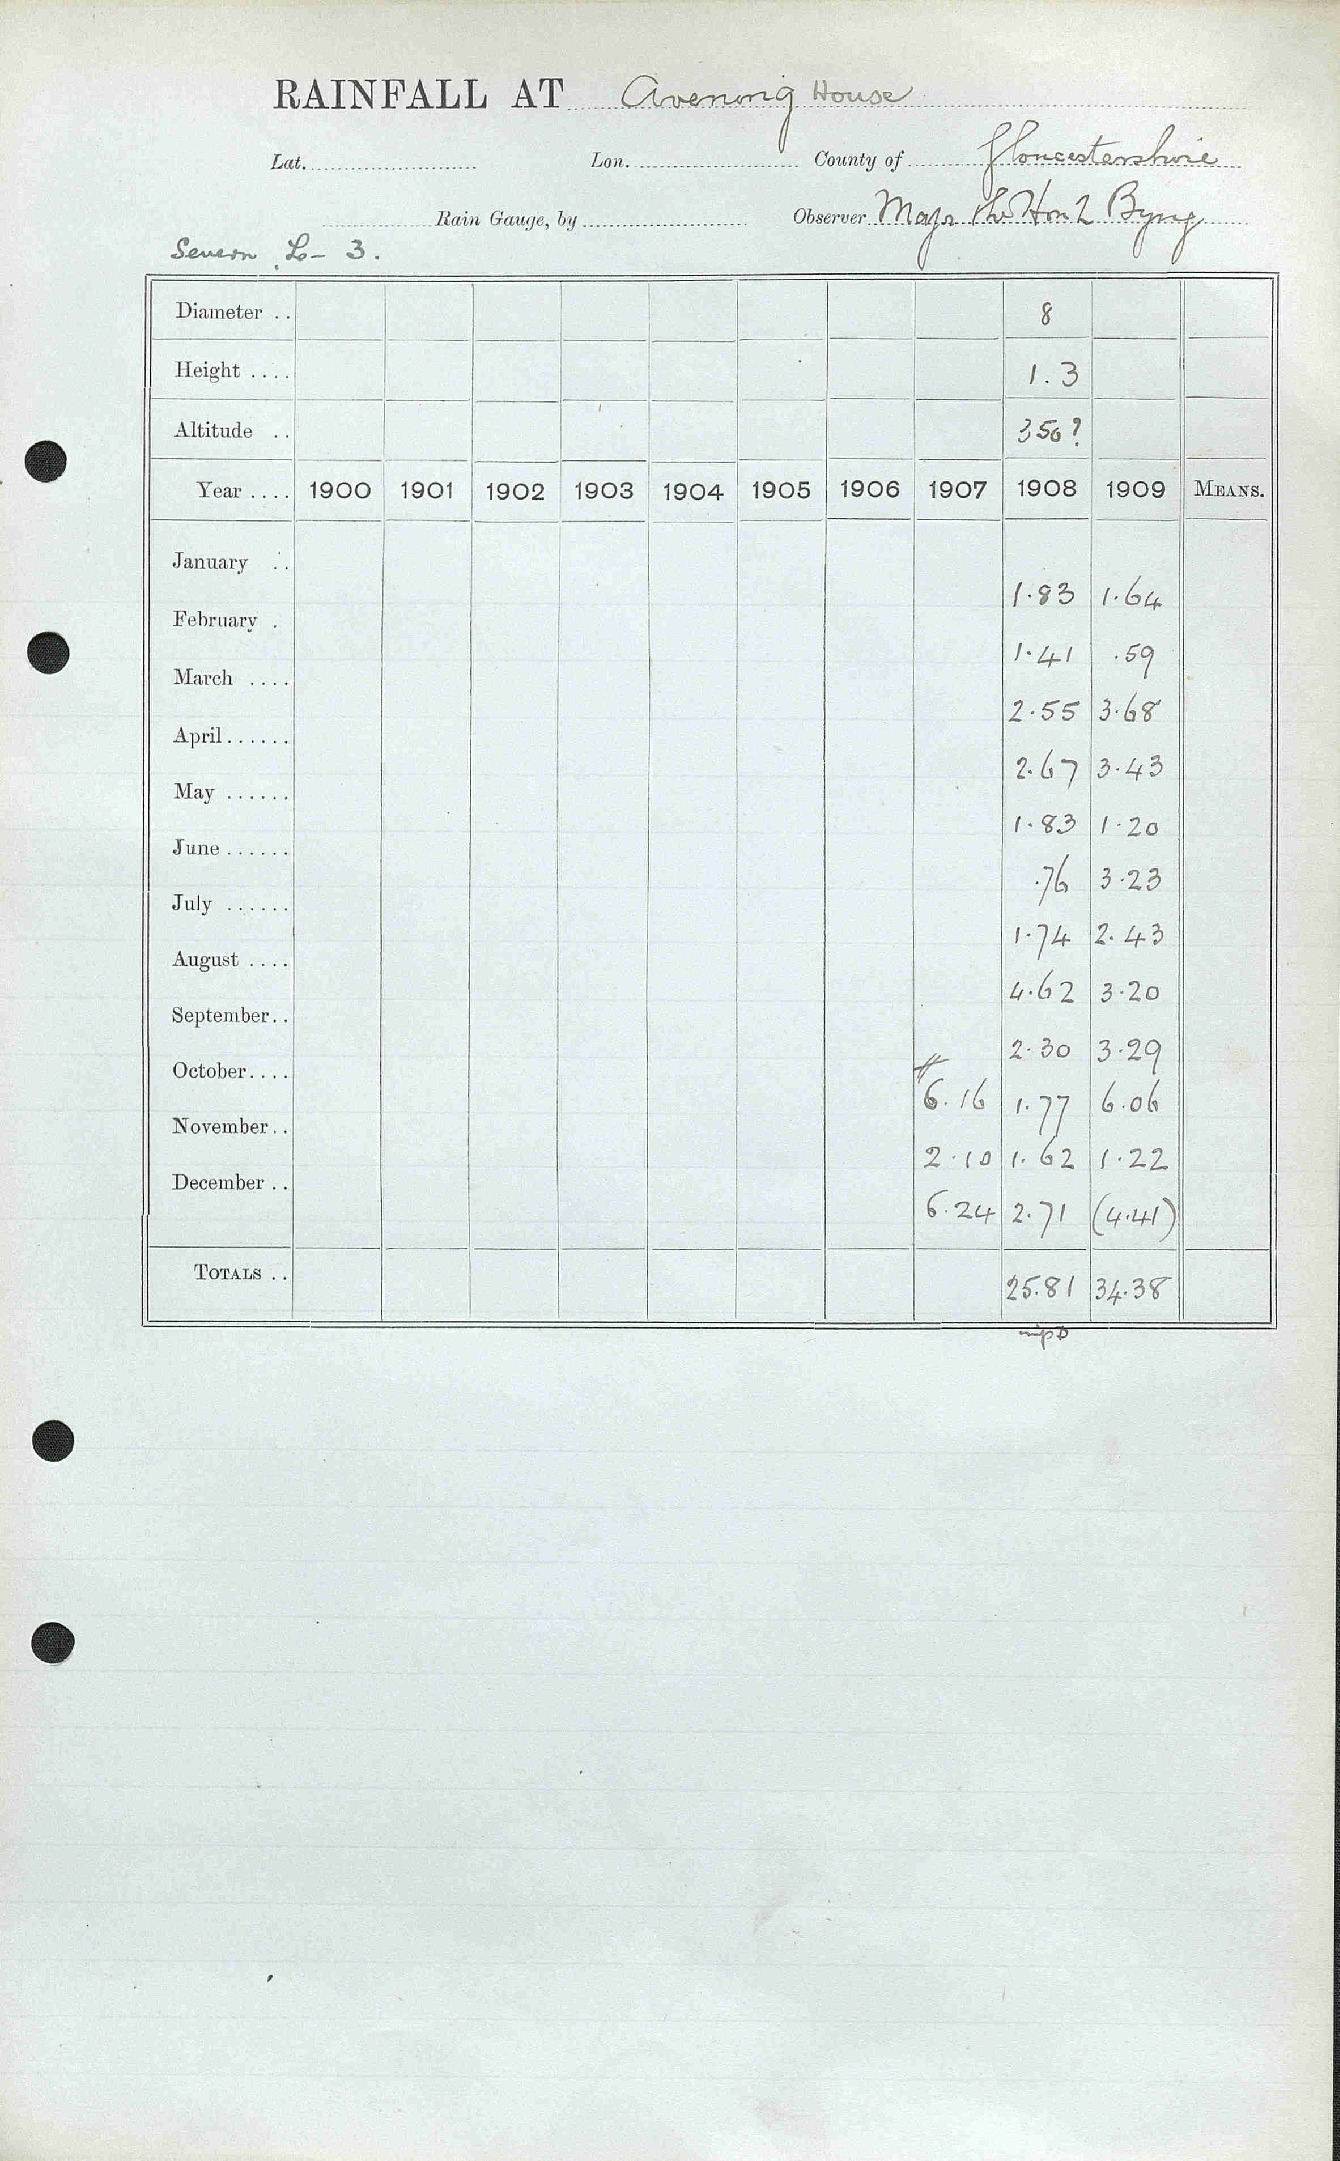 RAINFALL AT Avening House
Lat. Lon. County of Gloucestershire
Rain Gauge, by Observer Major the Hon L Byng
Severn L- 3.
Diameter .. 8
Height .... 1.3
Altitude .. 350?
Year .... 1900 1901 1902 1903 1904 1905 1906 1907 1908 1909 MEANS.
January ..
1.83 1.64
February .
1.41 .59
March ....
2.55 3.68
April ......
2.67 3.43
May ......
1.83 1.20
June ......
.76 3.23
July ......
1.74 2.43
August ....
4.62 3.20
September..
2.30 3.29
October....
6.16 1.77 6.06
November..
2.10 1.62 1.22
December ..
6.24 2.71 (4.41)
TOTALS ..
25.81 34.38